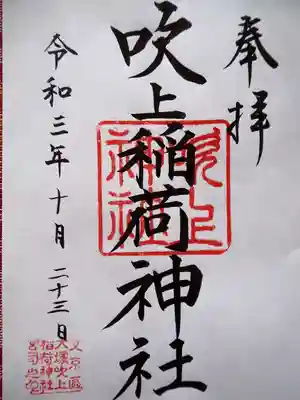 奉拝
吹上稲荷神社
吹上
神社
令和三年十月二十三日
文京區
大塚吹上
稲荷神社
宮司之印